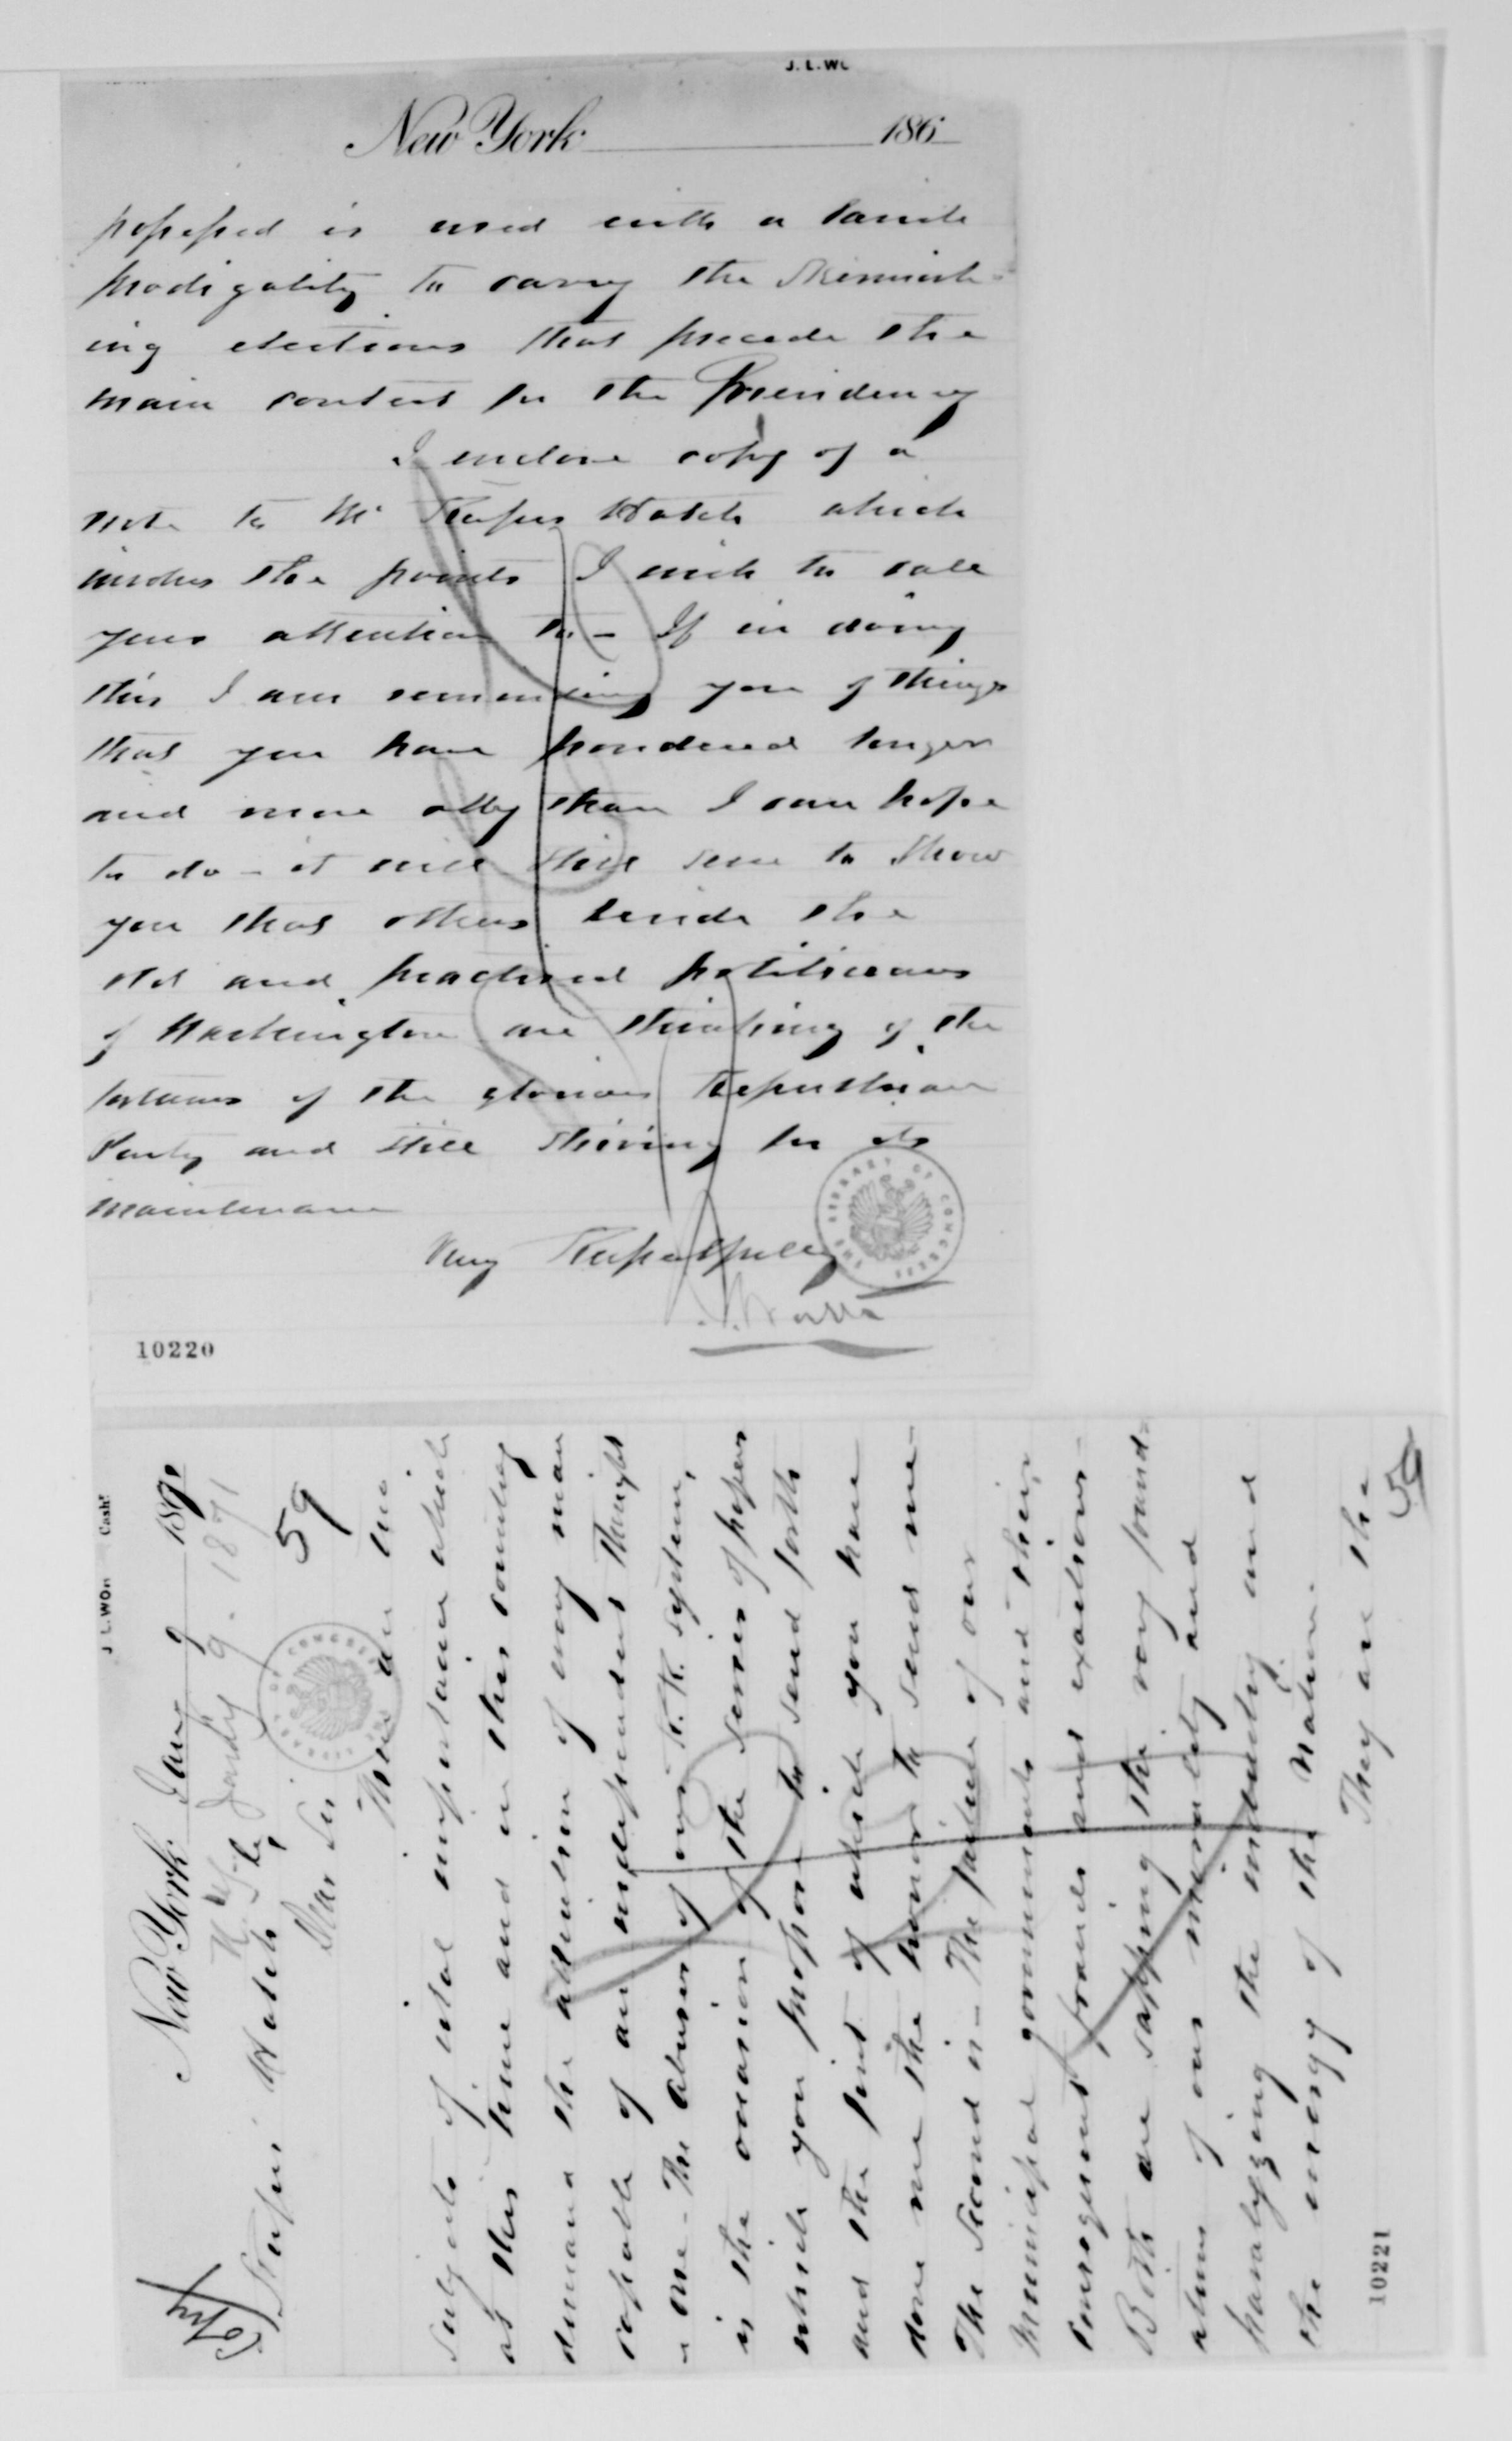 J. L. WO
New York 186
possessed is used with a lavish
prodigality to carry the skirmish-
ing elections that precede the
main contest for the Presidency
I enclose copy of a
note to Mr Rufus Hatch which
involves the points I wish to call
your attention to - If in doing
this I am reminding you of things
that you have pondered longer
and more ably than I can hope
to do - it will still serve to show
you that others beside the
old and practised politicians
of Washington are thinking of the
fortunes of the glorious Republican
Party and still striving for its
maintenance
Very Respectfully
THE LIBRARY OF CONGRESS
10220
J L. WOR Cash!
Copy
New York Jany 9 1871
Jany 9. 1871
Rufus Hatch Esq
59
Dear Sir
There are two
subjects of vital importance which
at this time and in this country
demand the attention of every man
capable of an independent thought
- one - The abuses of our R.R. system,
is the occasion of the series of papers
which you propose to send forth
and the first of which you have
done me the honor to send me -
The second is - The failure of our
Municipal governments and their
consequent frauds and exactions -
Both are sapping the very found-
ations of our morality and
paralyzing the industry and
the energy of the Nation.
They are the
59
10221